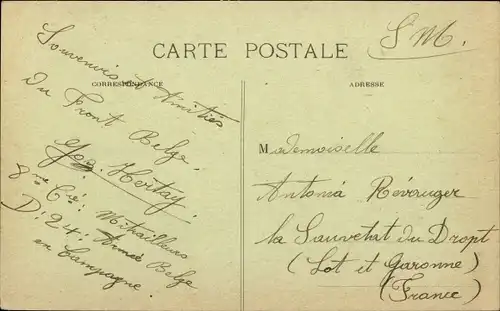 S.M.
CARTE POSTALE
CORRESPONDANCE
ADRESSE
Souvenirs et Amitiés
du Front Belge.
Hertay.
8me Cie: Mitrailleurs
D.24: Armée Belge
en Campagne.
Mademoiselle
Antonia
la Sauvetat du Dropt
(Lot et Garonne)
(France)